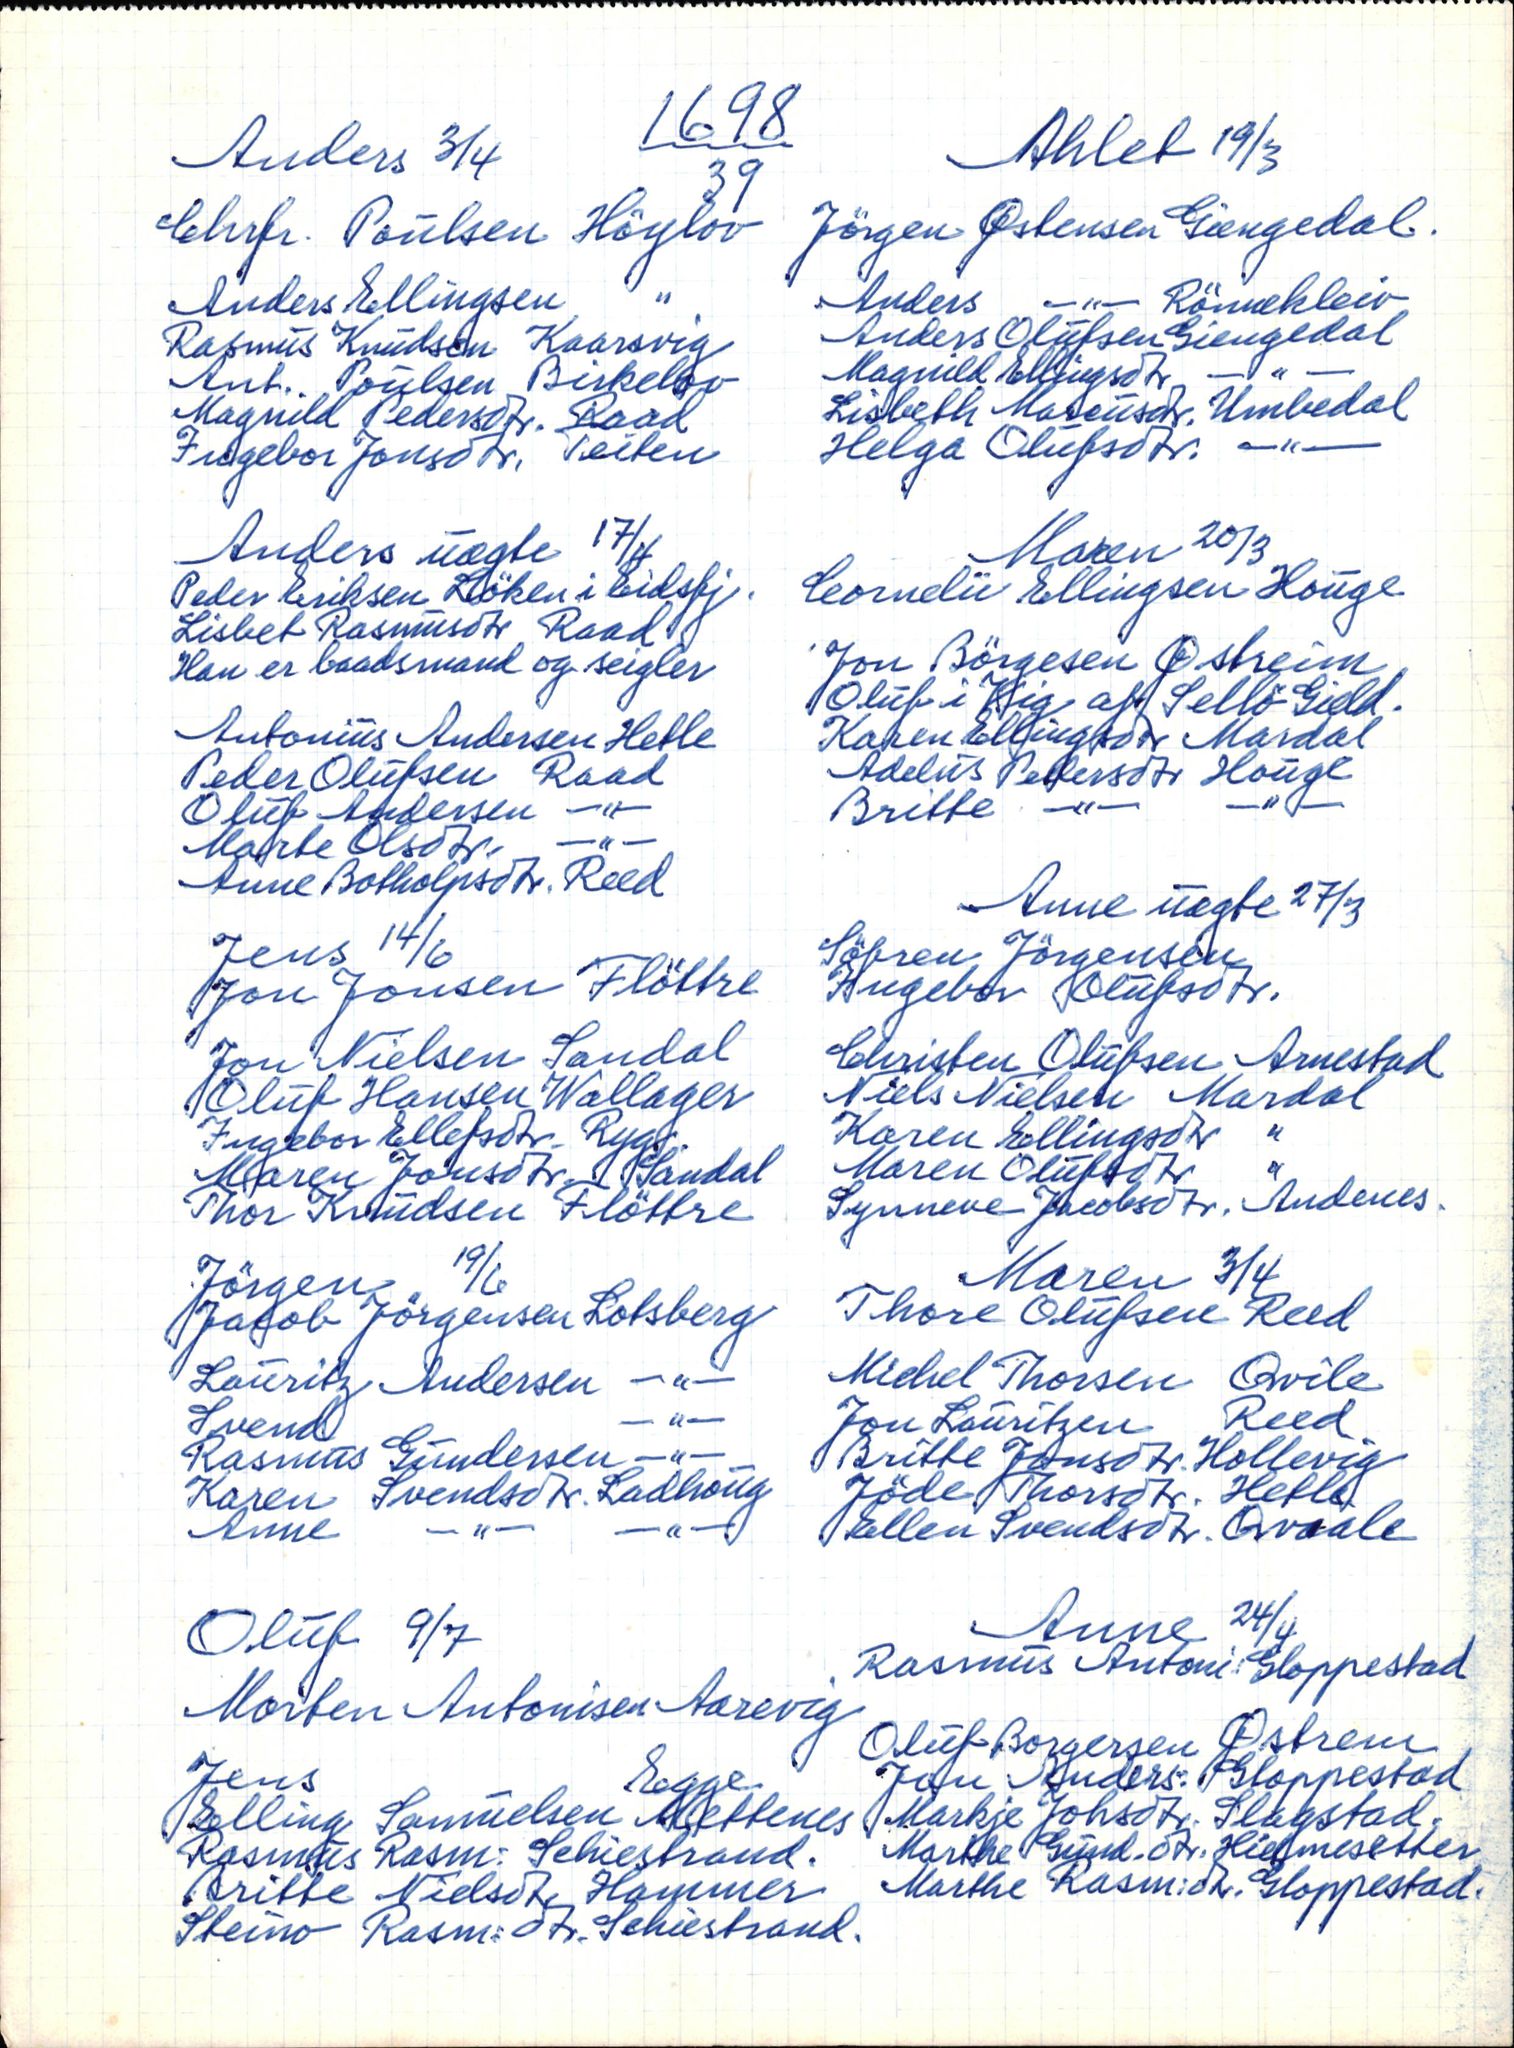 1698
39
Anders 3/4
Chrfr. Poulsen Höylov
Anders Ellingsen "
Rasmus Knudsen Kaarsvig
Ant. Poulsen Birkelov
Magnild Pedersdtr. Raad
Ingebor Jonsdtr. Teiten
Anders uægte 17/4
Peder Eriksen Löken i Eidsfj.
Lisbet Rasmusdtr Raad
Han er baadsmand og seigler
Antonius Andersen Hetle
Peder Olufsen Raad
Oluf Andersen —"—
Marte Olsdtr. —"—
Anne Botholpsdtr. Reed
Jens 14/6
Jon Jonsen Flöttre
Jon Nielsen Sandal
Oluf Hansen Wallager
Ingebor Ellefsdtr. Rygg.
Maren Jonsdtr. Sandal
Thor Knudsen Flöttre
Jörgen 19/6
Jacob Jörgensen Lotsberg
Lauritz Andersen —"—
Svend —"—
Rasmus Gundersen —"—
Karen Svendsdtr. Ladhoug
Anne —"— —"—
Oluf 9/7
Morten Antonisen Aarevig
Jens Egge
Elling Samuelsen Mettenes
Rasmus Rasm: Schiestrand.
Britte Nielsdtr Hammer
Steino Rasm: dtr. Schiestrand.
Ahlet 19/3
Jörgen Østensen Giengedal.
Anders —"— Rönnekleiv
Anders Olufsen Giengedal
Magnild Ellingsdtr —"—
Lisbeth Marcusdtr. Umbedal
Helga Olufsdtr. —"—
Maren 20/3
Cornelii Ellingsen Houge
Jon Börgesen Østreim
Oluf i Vig af Sellö Gield.
Karen Ellingsdtr Mardal
Adelus Pedersdtr Houge
Britte —"— —"—
Anne uægte 27/3
Söfren Jörgensen
Ingebor Olufsdtr.
Christen Olufsen Arnestad
Niels Nielsen Mardal
Karen Ellingsdtr "
Maren Olufsdtr "
Synneve Jacobsdtr. Andenes.
Maren 3/4
Thore Olufsen Reed
Michel Thorsen Qvile
Jon Lauritzen Reed
Britte Jonsdtr. Hollevig
Jöde Thorsdtr. Hetle
Ellen Svendsdtr. Qvaale
Anne 24/4
Rasmus Antoni: Gloppestad
Oluf Borgersen Østrem
Jon Anders: Gloppestad
Markje Johsdtr. Slagstad.
Marthe Gund. dtr. Hiemesetter
Marthe Rasm: dtr. Gloppestad.